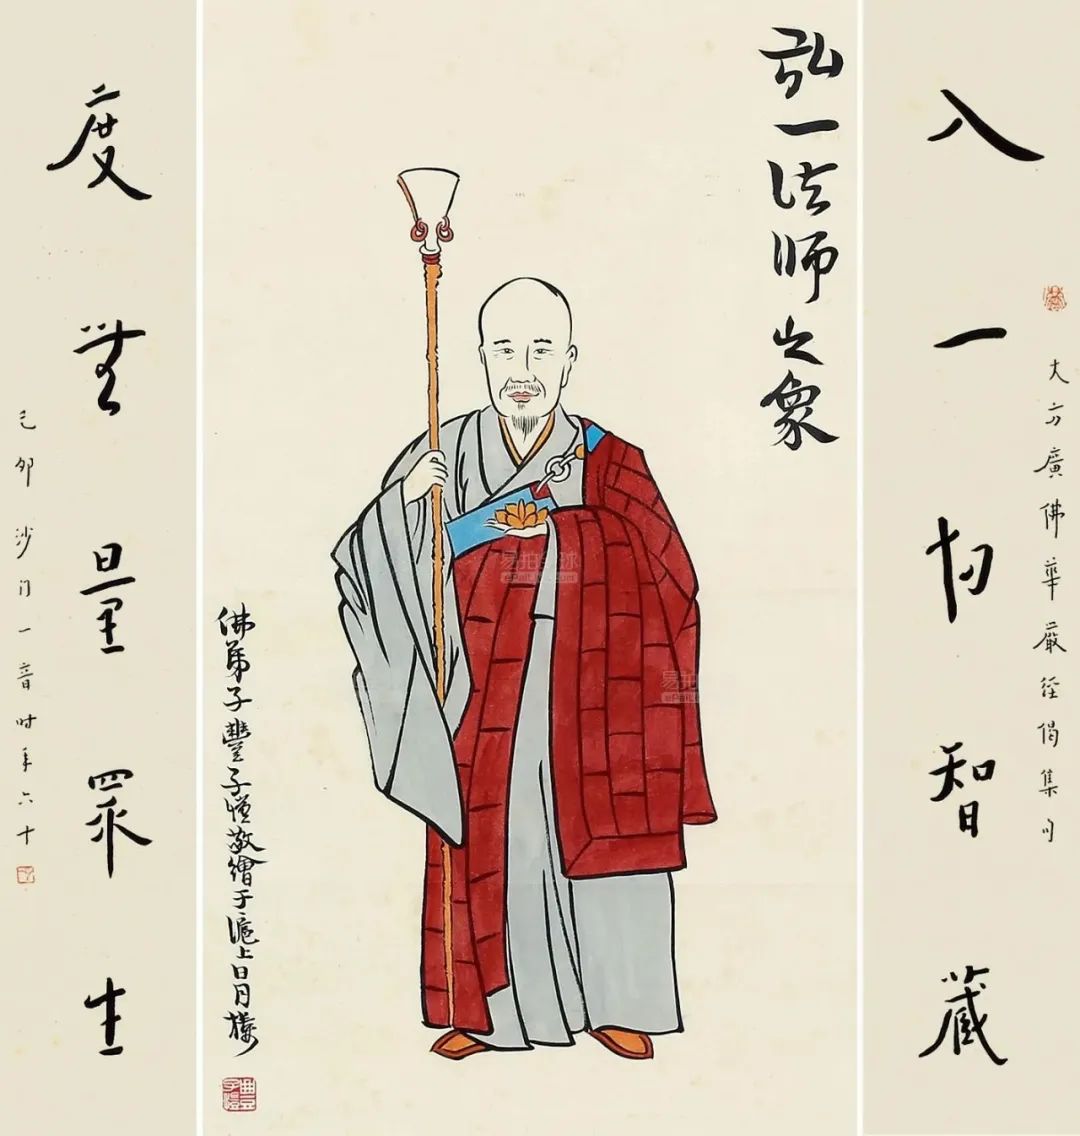 大方廣佛華嚴經偈集句
入一切智藏
弘一法師之象
佛弟子豐子愷敬繪于滬上日月樓
豐子愷
度無量眾生
己卯沙門一音時年六十
易拍全球